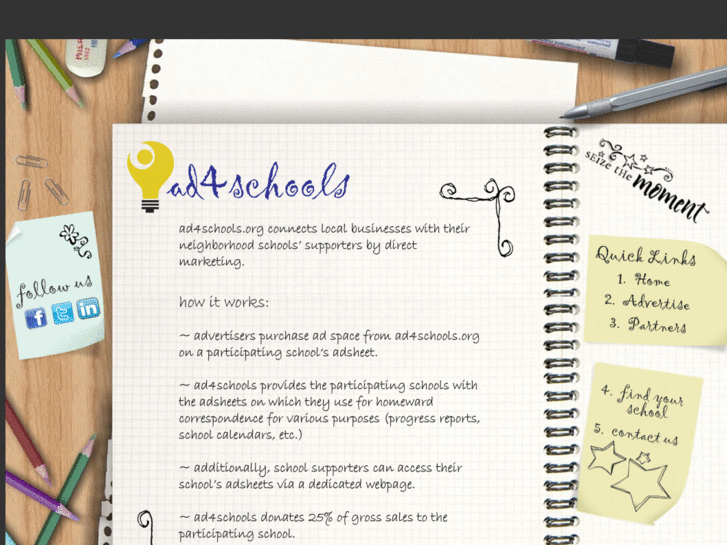 ad4schools
SEIZE THE
moment
ad4schools.org connects local businesses with their
neighborhood schools' supporters by direct
marketing.
how it works:
~ advertisers purchase ad space from ad4schools.org
on a participating school's adsheet.
~ ad4schools provides the participating schools with
the adsheets on which they use for homeward
correspondence for various purposes (progress reports,
school calendars, etc.)
~ additionally, school supporters can access their
school's adsheets via a dedicated webpage.
~ ad4schools donates 25% of gross sales to the
participating school.
follow us
f
t
in
Quick Links
1. Home
2. Advertise
3. Partners
4. find your
school
5. contact us